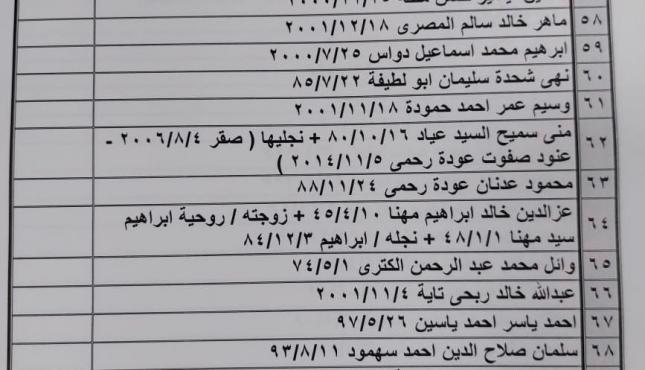 ٥٨ ماهر خالد سالم المصرى ٢٠٠١/١٢/١٨
٥٩ ابرهيم محمد اسماعيل دواس ٢٠٠٠/٧/٢٥
٦٠ نهى شحدة سليمان ابو لطيفة ٨٥/٧/٢٢
٦١ وسيم عمر احمد حمودة ٢٠٠١/١١/١٨
٦٢ منى سميح السيد عياد ٨٠/١٠/١٦ + نجليها ( صقر ٢٠٠٦/٨/٤ -
عنود صفوت عودة رحمى ٢٠١٤/١١/٥ )
٦٣ محمود عدنان عودة رحمى ٨٨/١١/٢٤
٦٤ عزالدين خالد ابراهيم مهنا ٤٥/٤/١٠ + زوجته / روحية ابراهيم
سيد مهنا ٤٨/١/١ + نجله / ابراهيم ٨٤/١٢/٣
٦٥ وائل محمد عبد الرحمن الكترى ٧٤/٥/١
٦٦ عبدالله خالد ربحى تاية ٢٠٠١/١١/٤
٦٧ احمد ياسر احمد ياسين ٩٧/٥/٢٦
٦٨ سلمان صلاح الدين احمد سهمود ٩٣/٨/١١